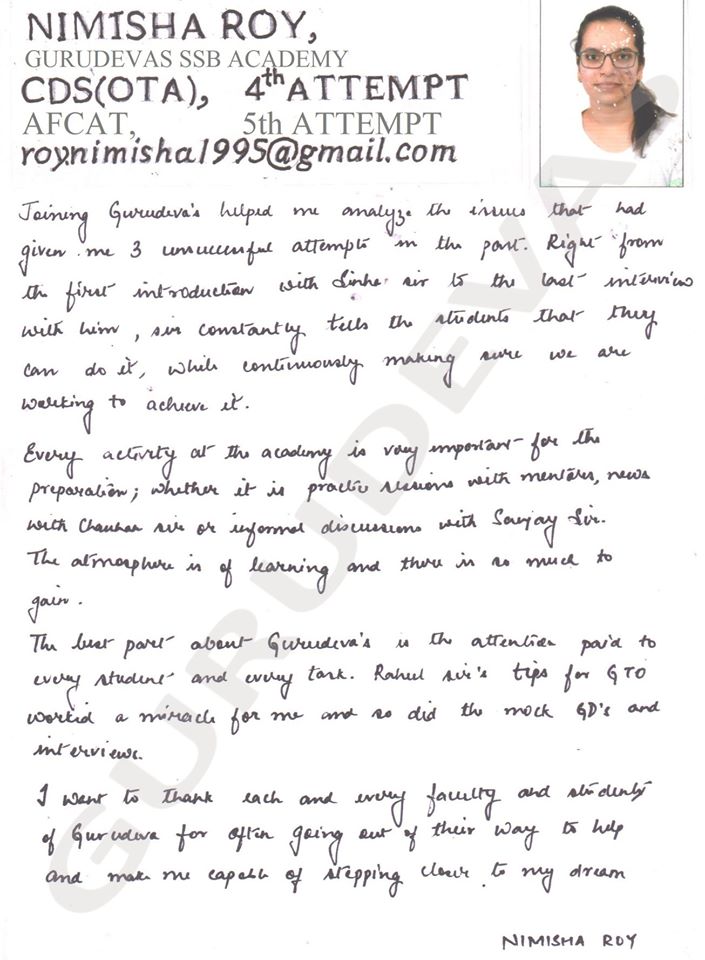 NIMISHA ROY,
GURUDEVAS SSB ACADEMY
CDS(OTA), 4th ATTEMPT
AFCAT, 5th ATTEMPT
roy.nimisha1995@gmail.com
Joining Gurudeva's helped me analyze the issues that had
given me 3 unsuccessful attempts in the past. Right from
the first introduction with Sinha sir to the last interview
with him, sir constantly tells the students that they
can do it, while continuously making sure we are
working to achieve it.
Every activity at the academy is very important for the
preparation; whether it is practic sessions with mentors, news
with Chauhan sir or informal discussions with Sanjay Sir.
The atmosphere is of learning and there is so much to
gain.
The best part about Gurudeva's is the attention paid to
every student and every task. Rahul sir's tips for GTO
worked a miracle for me and so did the mock GD's and
interviews.
I want to thank each and every faculty and students
of Gurudeva for often going out of their way to help
and make me capable of stepping closer to my dream
NIMISHA ROY
GURUDEVA